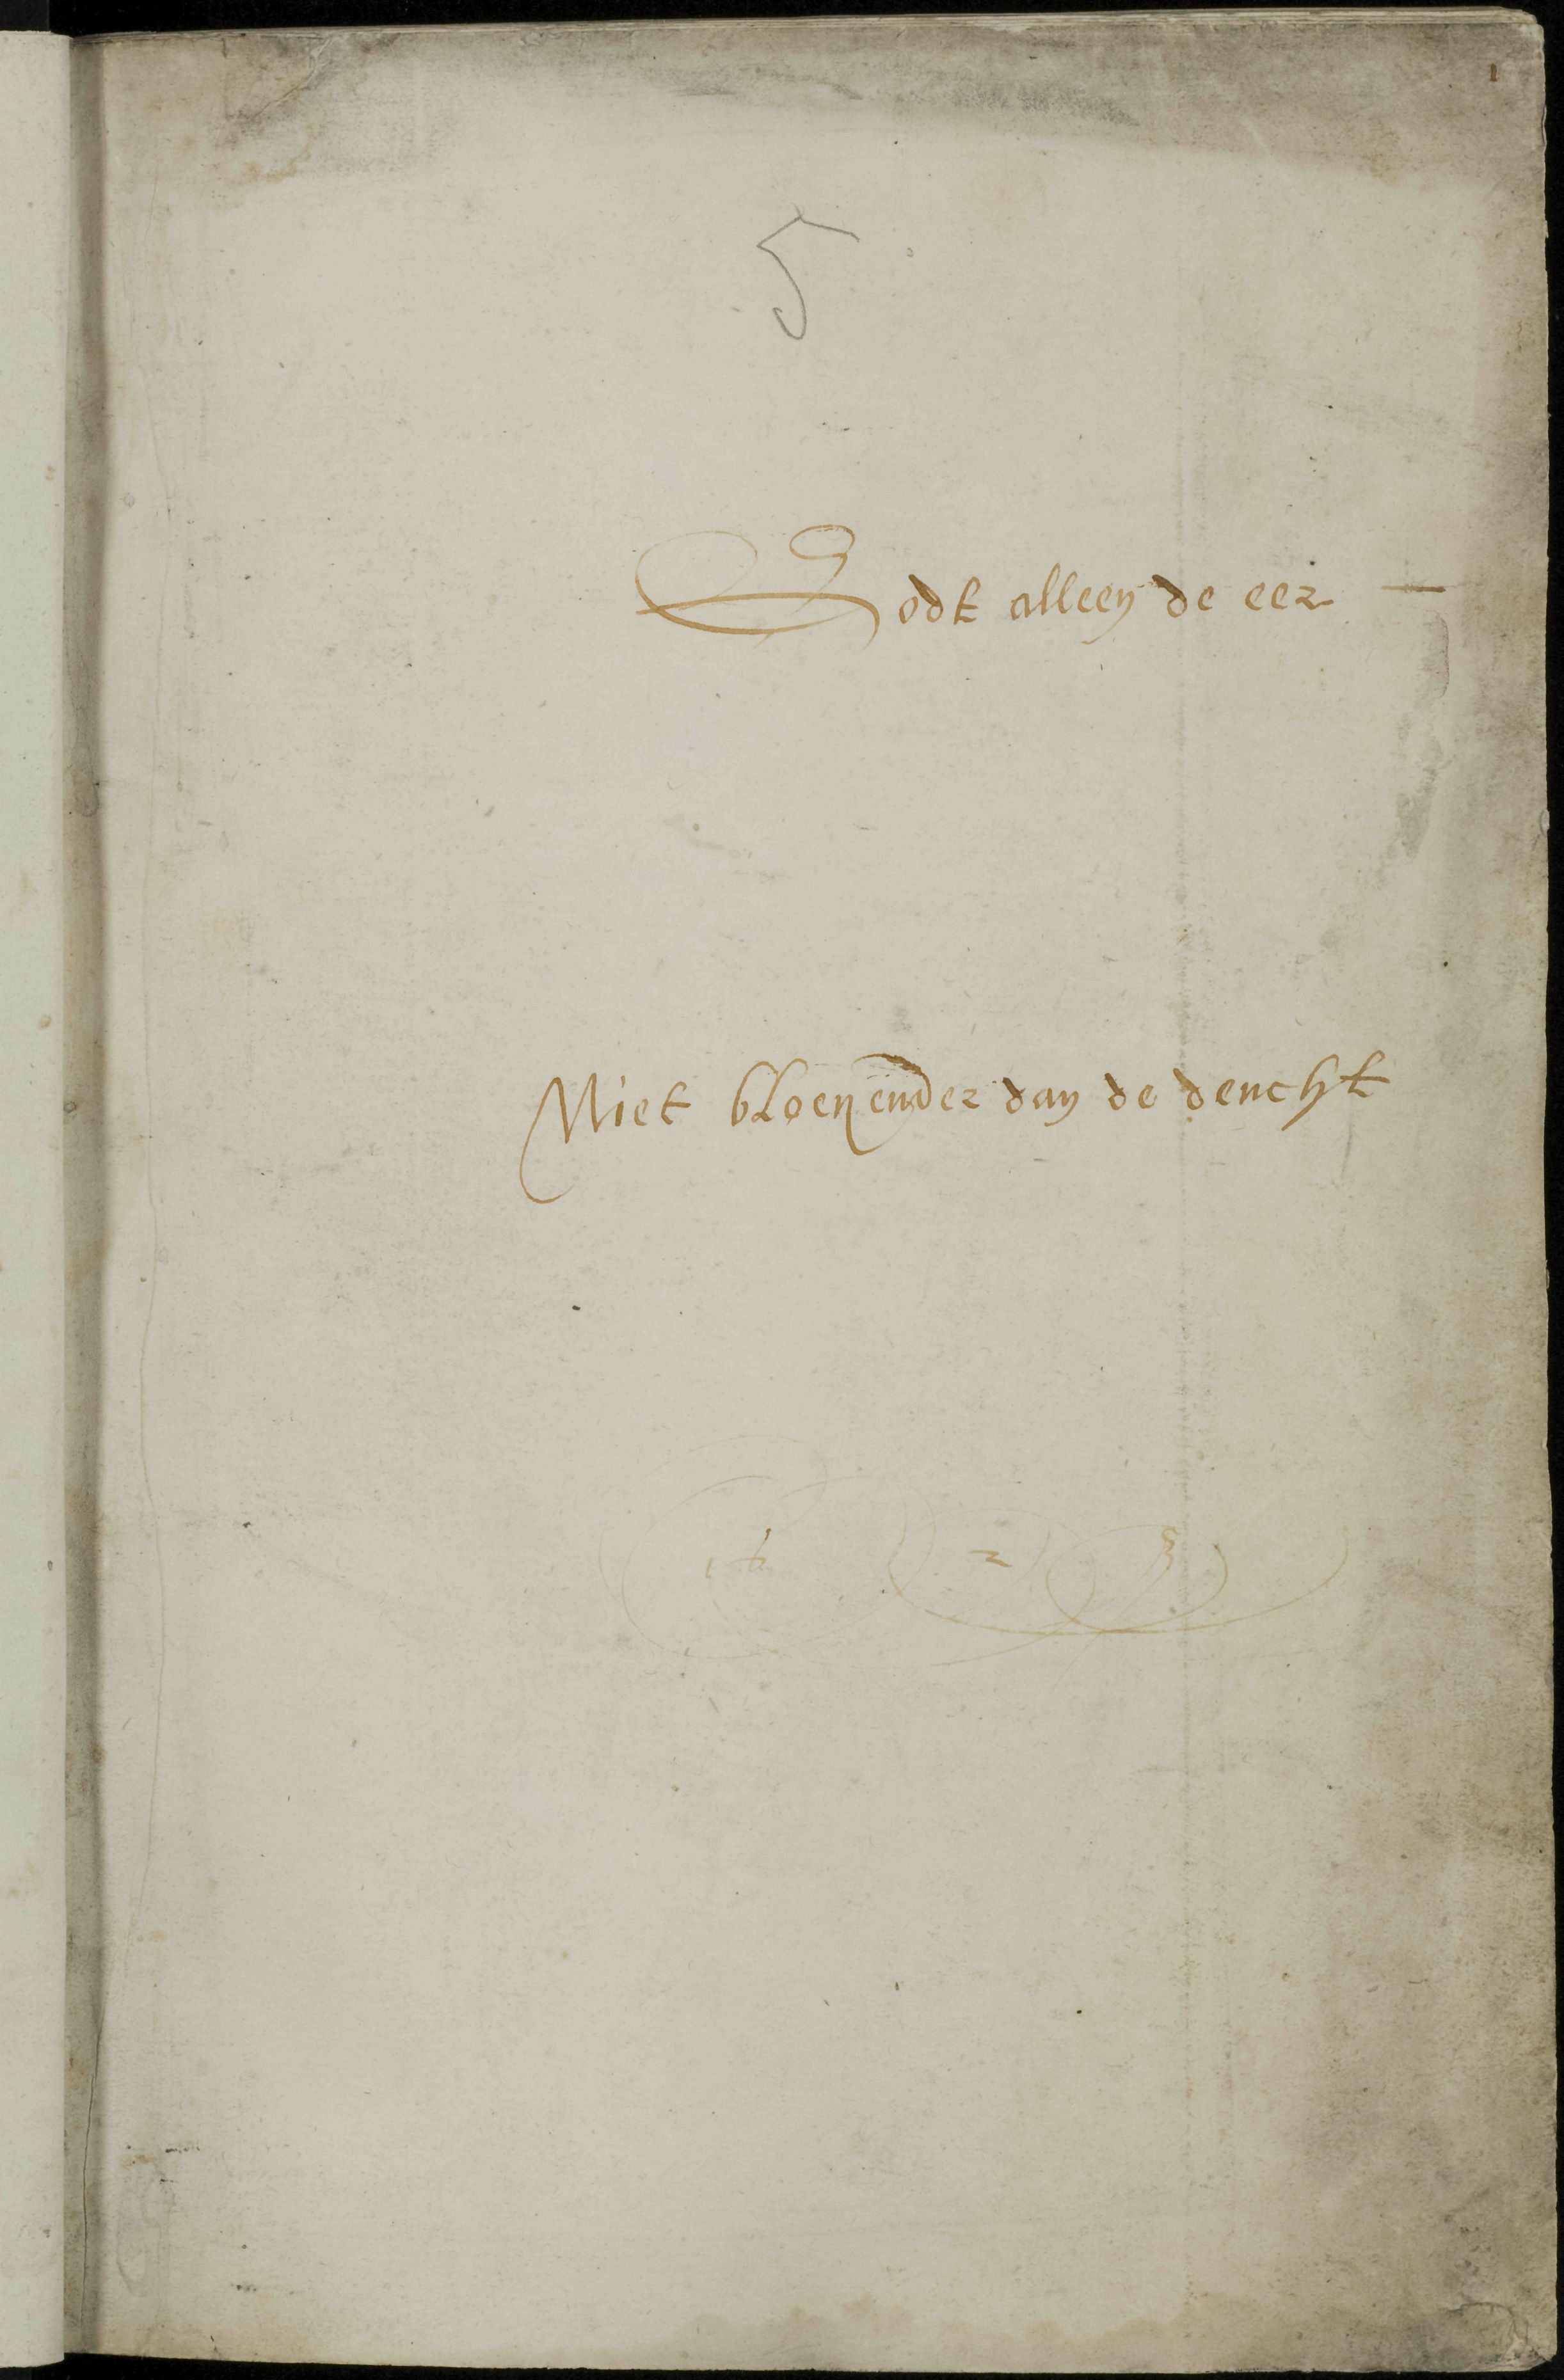 1
5
Godt alleen de eer
Niet bloeyender dan de deucht
16 2 8